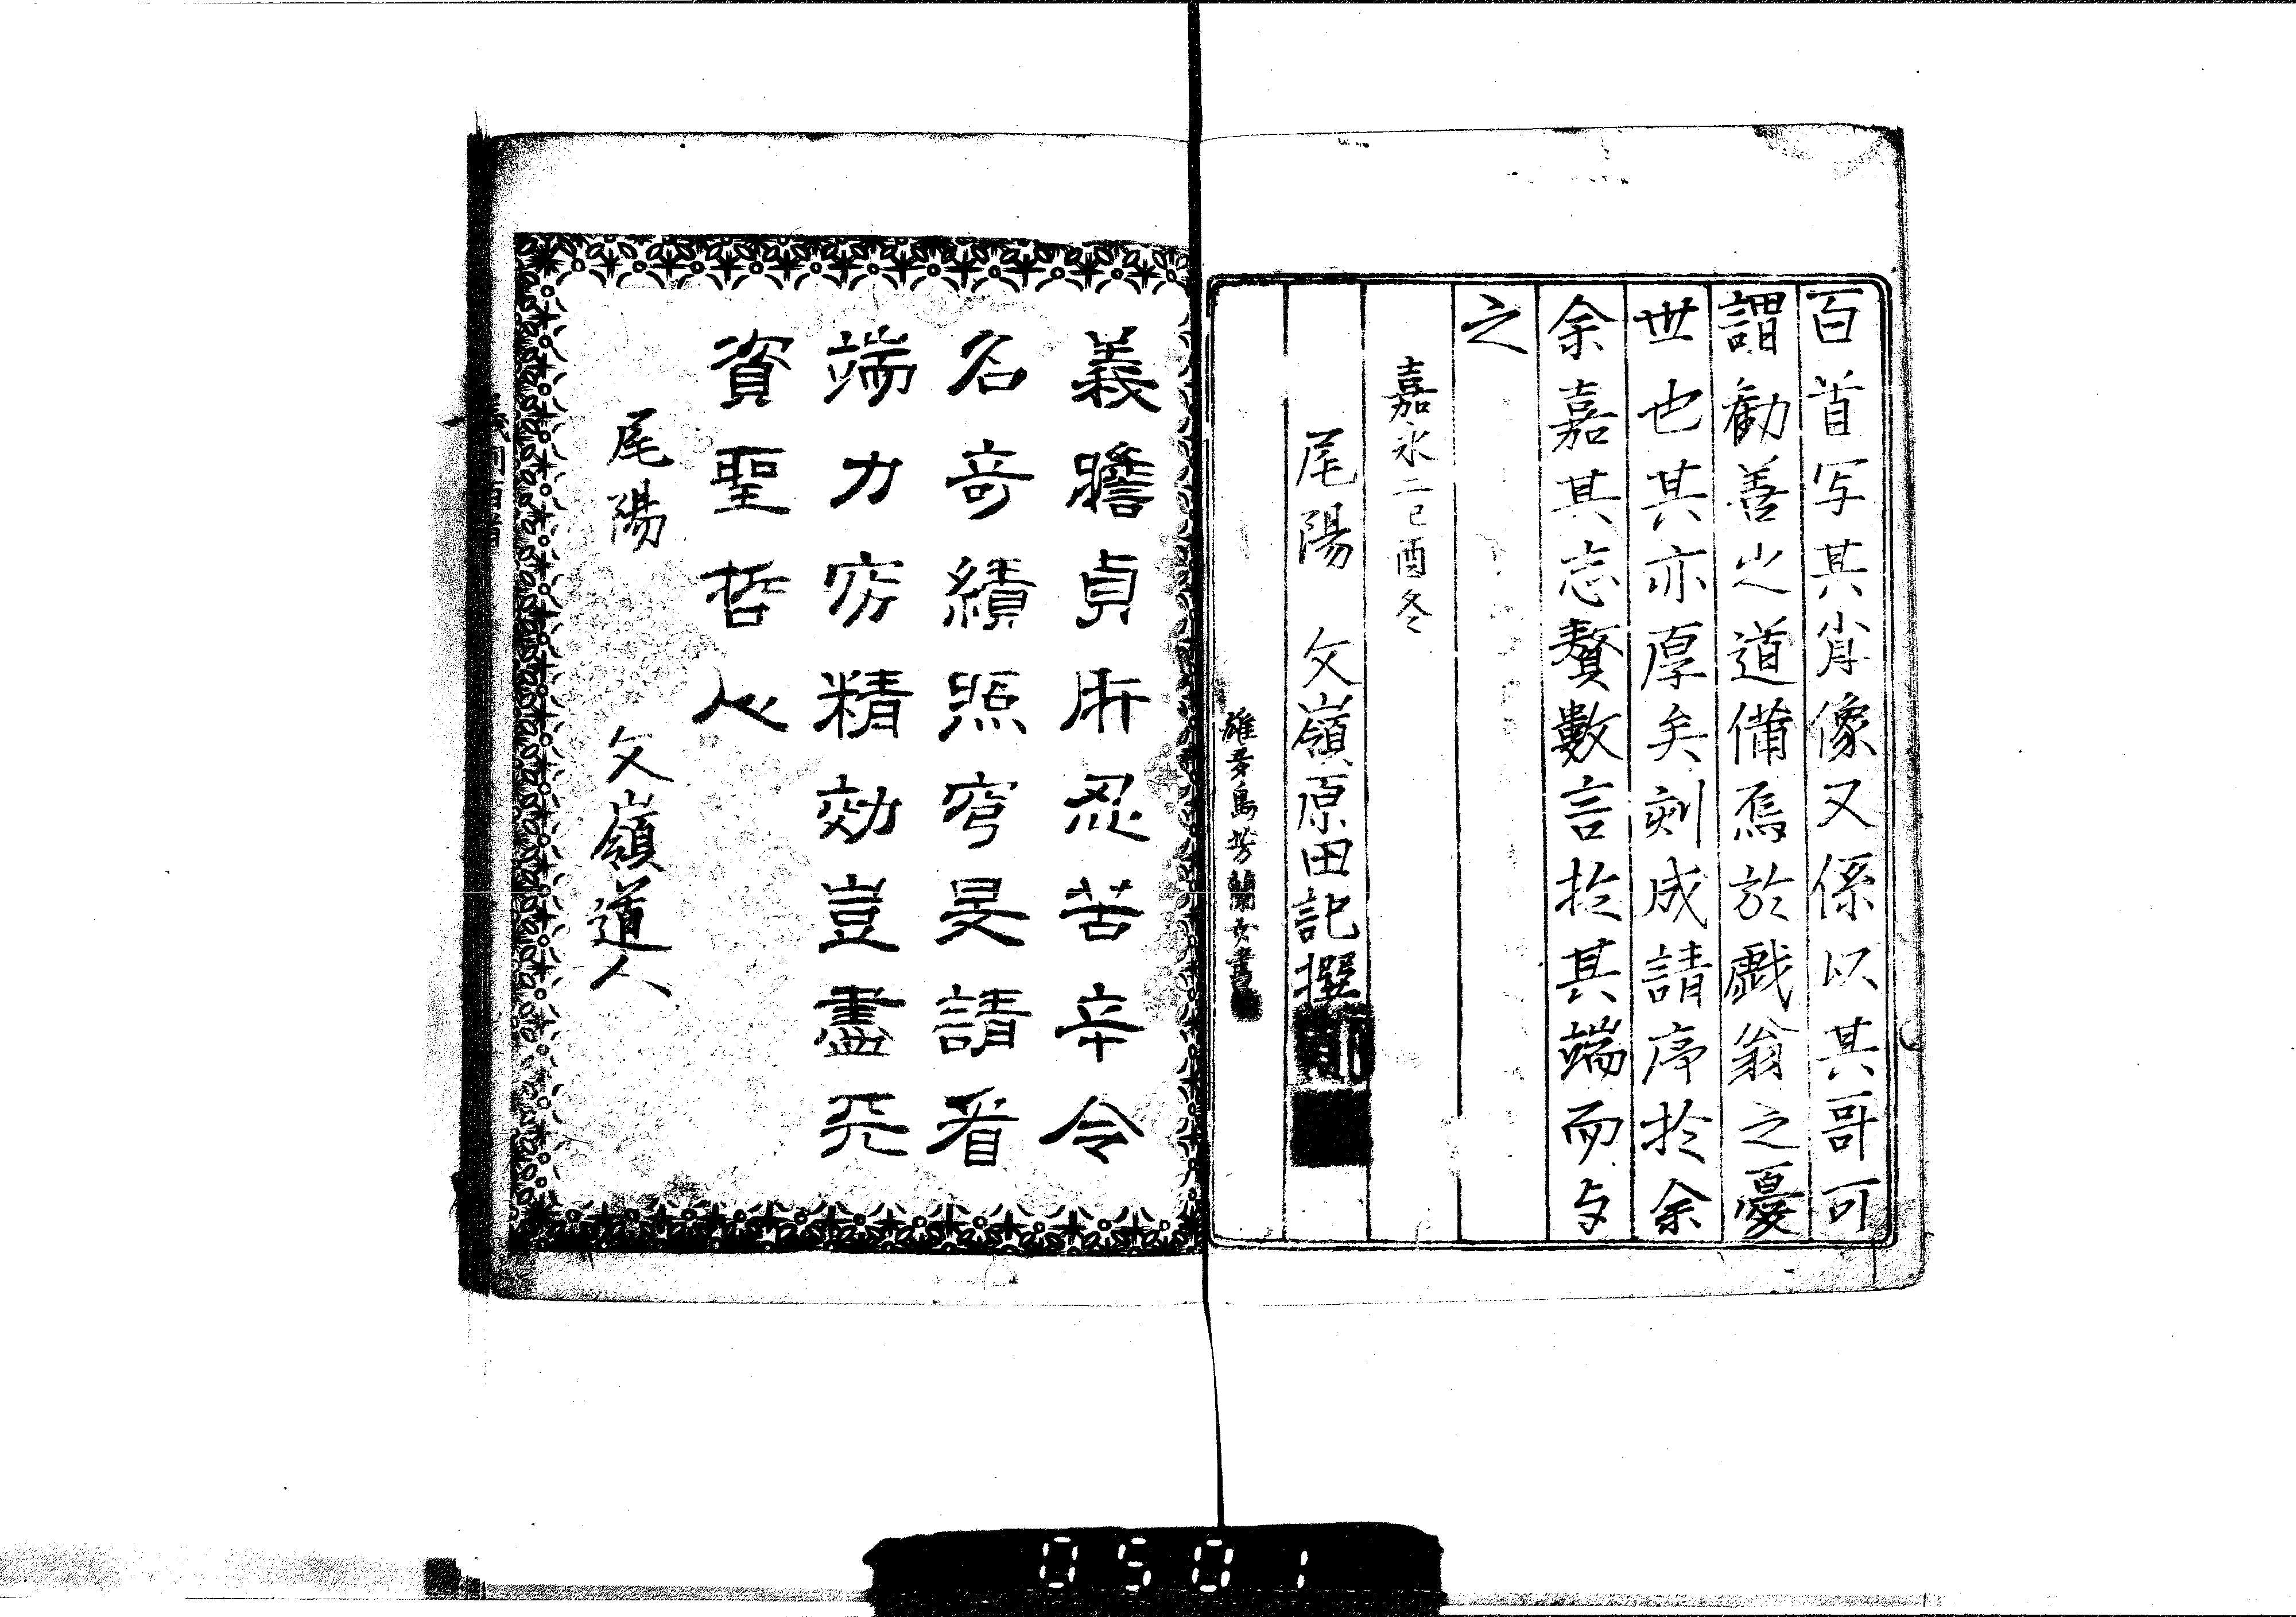 百首写其肖像又係以其哥可
謂勧善之道備焉於戯翁之憂
世也其亦厚矣刻成請序於余
余嘉其志贅數言於其端而与
之
嘉永二己酉冬
尾陽 文嶺原田記撰
雄芳島芳蘭女書
義膽貞肝忍苦辛令
名奇績照穹旻請看
端力窮精効豈盡天
資聖哲心
尾陽 文嶺道人
0501